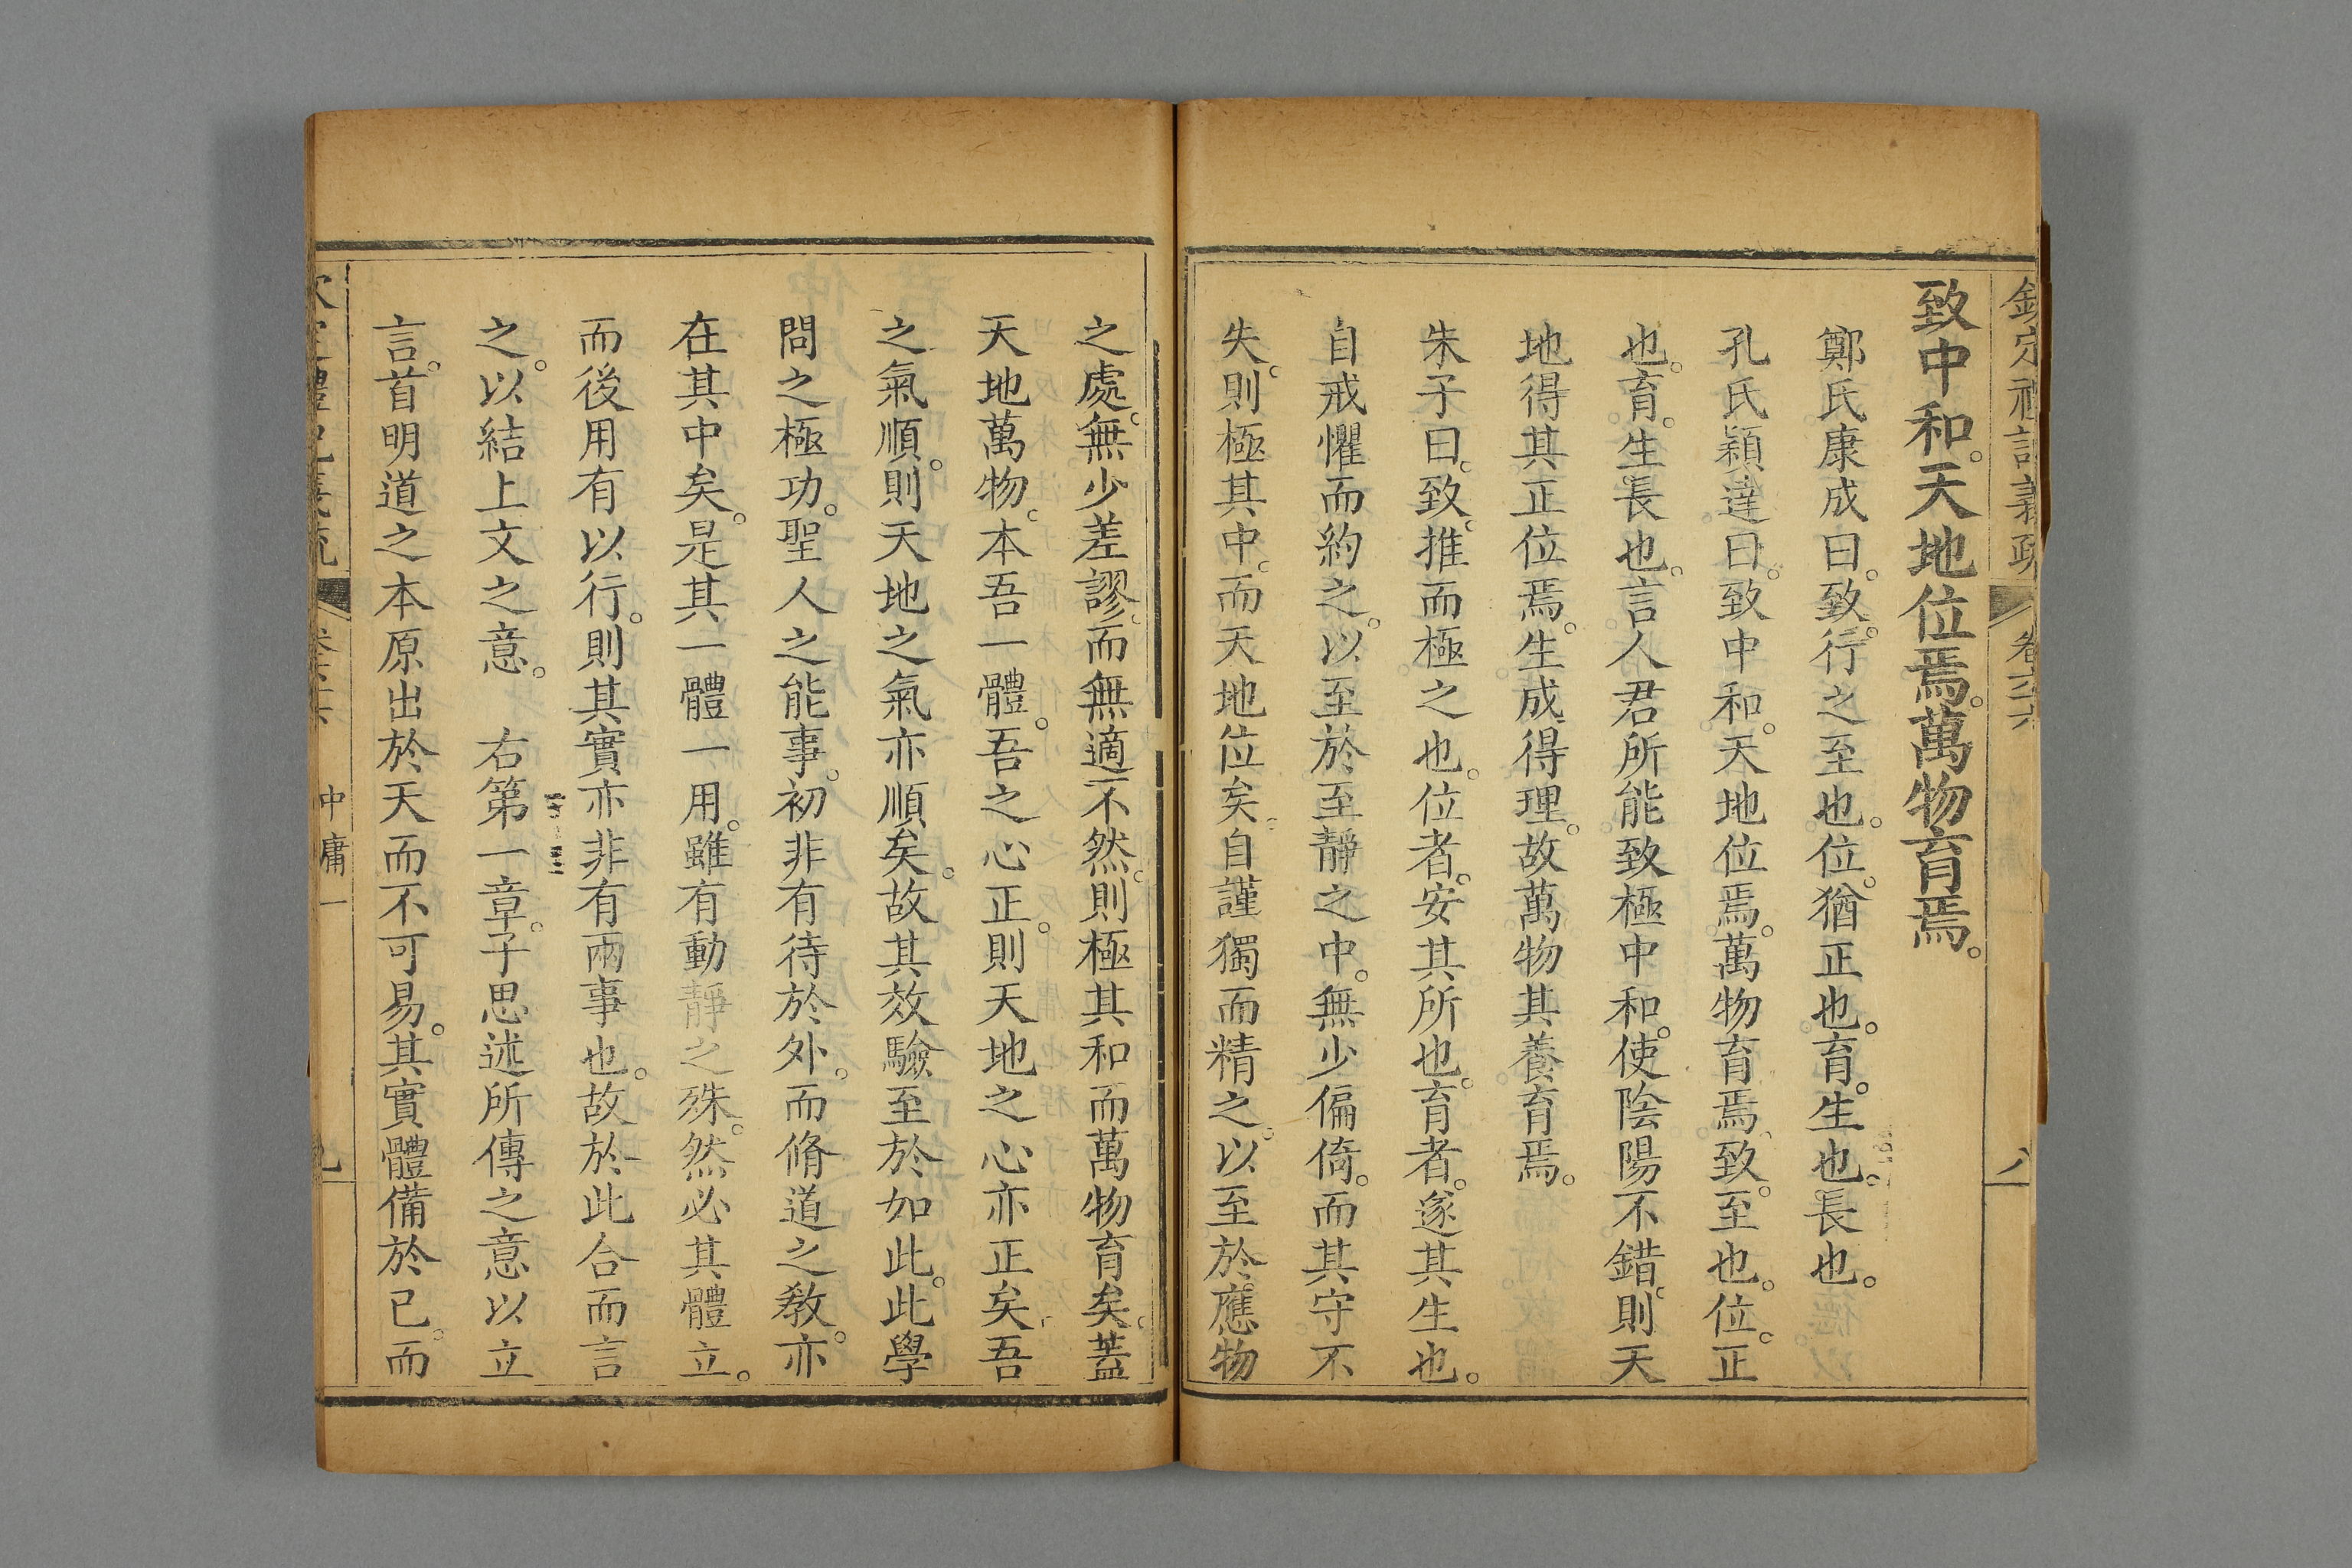 欽定禮記義疏 卷六十六 八
致中和。天地位焉。萬物育焉。
鄭氏康成曰。致。行之至也。位。猶正也。育。生也。長也。
孔氏穎達曰。致中和。天地位焉。萬物育焉。致。至也。位。正
也。育。生長也。言人君所能致極中和。使陰陽不錯。則天
地得其正位焉。生成得理。故萬物其養育焉。
朱子曰。致。推而極之也。位者。安其所也。育者。遂其生也。
自戒懼而約之。以至於至靜之中。無少偏倚。而其守不
失。則極其中。而天地位矣。自謹獨而精之。以至於應物
之處。無少差謬。而無適不然。則極其和而萬物育矣。蓋
天地萬物。本吾一體。吾之心正。則天地之心亦正矣。吾
之氣順。則天地之氣亦順矣。故其效驗至於如此。此學
問之極功。聖人之能事。初非有待於外。而脩道之教。亦
在其中矣。是其一體一用。雖有動靜之殊。然必其體立。
而後用有以行。則其實亦非有兩事也。故於此合而言
之。以結上文之意。 右第一章。子思述所傳之意以立
言。首明道之本原出於天而不可易。其實體備於已。而
中庸一 九